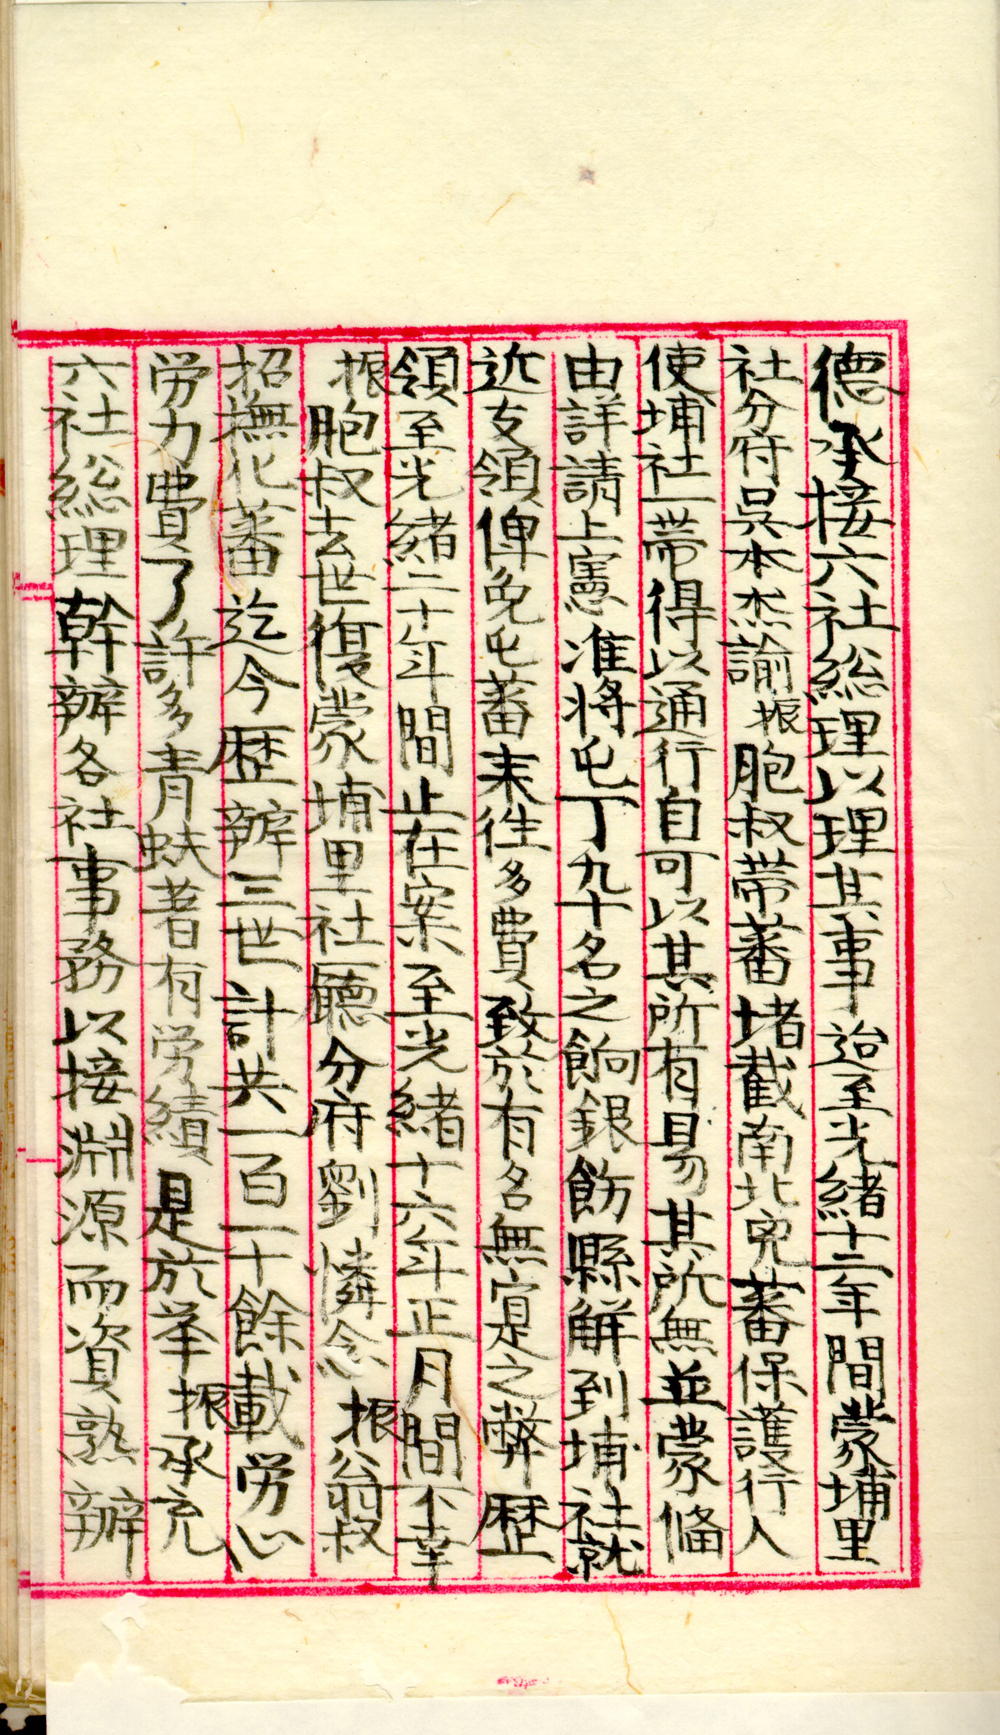 德承接六社総理以理其事迨至光緒十二年間蒙埔里
社分府吳本杰諭振胞叔帶蕃堵截南北兇蕃保護行人
使埔社一帶得以通行自可以其所有易其所無並蒙俻
由詳請上憲准將屯丁九十名之餉銀飭縣觧到埔社就
近支領俾免屯蕃来徃多費致於有名無寔之弊歷
領至光緒二十年間止在案至光緒十六年正月間不幸
振胞叔去世復蒙埔里社廳分府劉憐念振翁叔
招撫化蕃迄今歴辦三世計共一百一十餘載労心
労力費了許多青蚨著有労績是於举振承充
六社総理幹辦各社事務以接淵源而資熟辦